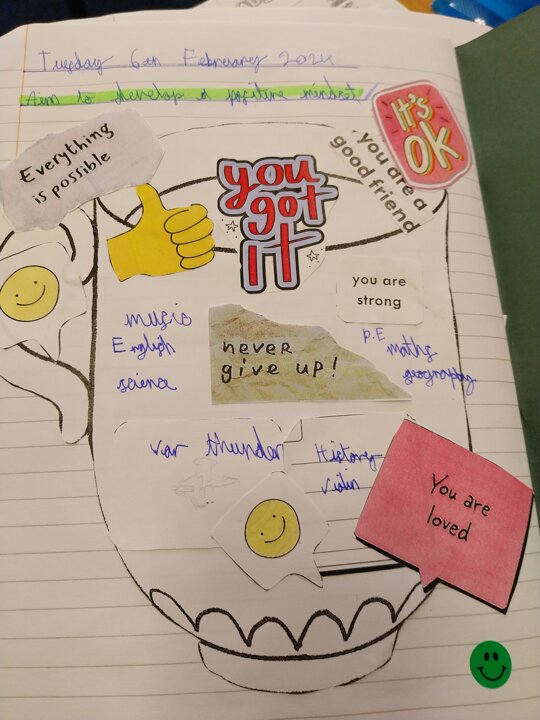 Tuesday 6th February 2024
Aim to develop a positive mindset
IT'S
OK
Everything
is possible
you
got
IT
you are a
good friend
you are
strong
music
English
science
never
give up!
P.E
maths
geography
war thunder
History
violin
You are
loved